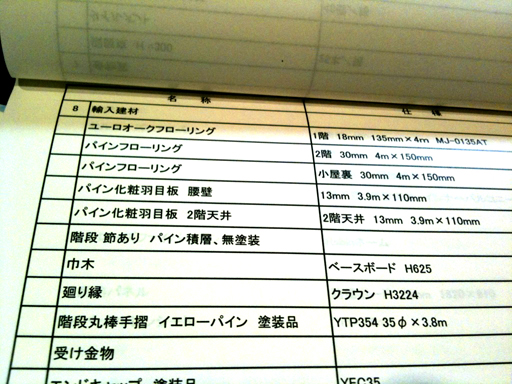 名 称 仕 様
8 輸入建材
ユーロオークフローリング 1階 18mm 135mm×4m MJ-0135AT
パインフローリング 2階 30mm 4m×150mm
パインフローリング 小屋裏 30mm 4m×150mm
パイン化粧羽目板 腰壁 13mm 3.9m×110mm
パイン化粧羽目板 2階天井 2階天井 13mm 3.9m×110mm
階段 節あり パイン積層、無塗装
巾木 ベースボード H625
廻り縁 クラウン H3224
階段丸棒手摺 イエローパイン 塗装品 YTP354 35φ×3.8m
受け金物
エンドキャップ 塗装品 YEC35